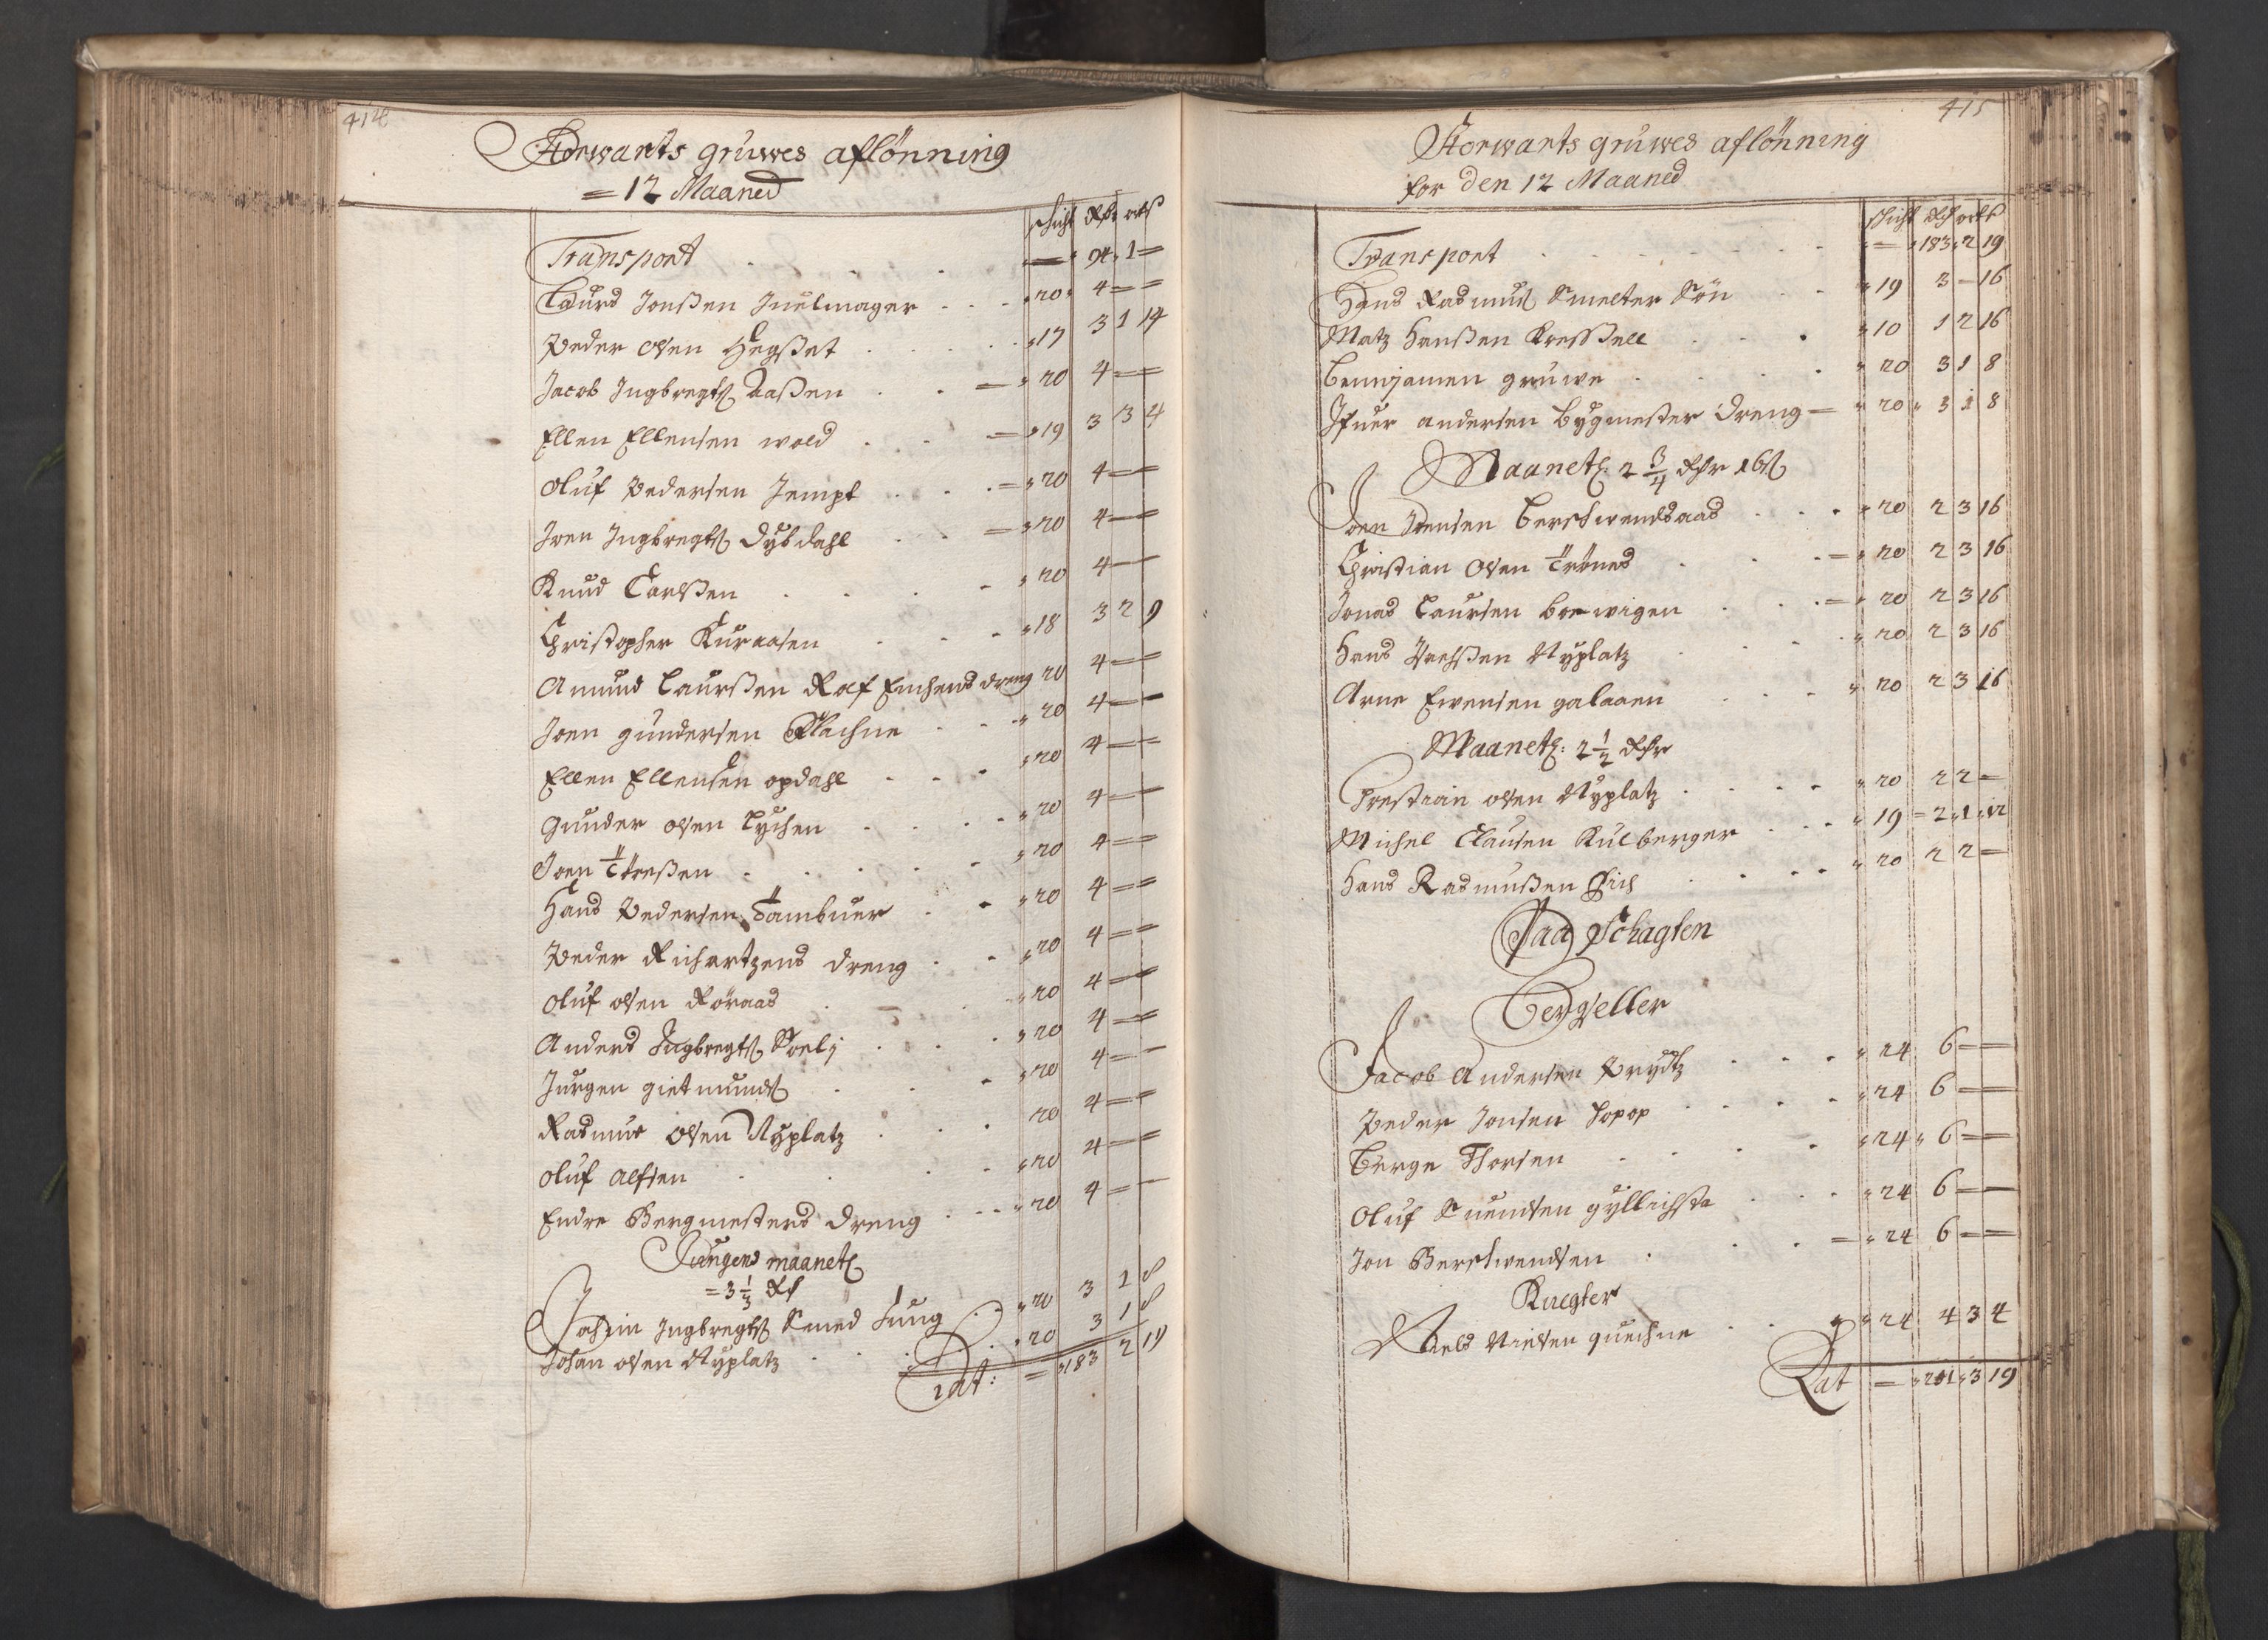 414
Storwarts gruwes aflönning
= 12 Maaned
schicht Rdr ort s
Transport . . . — " 94 " 1 =
Laurs Jonßen Juelmager . . . " 20 " 4 = =
Peder Olsen Hegßet . . . . . " 17 3 1 14
Jacob Ingbregts Aaßen . . — " 20 4 = =
Ellen Ellensen wold . . — " 19 3 3 4
Oluf Pedersen Jempt . . . — " 20 4 = =
Joen Ingbregts Dybdahl . . — " 20 4 = =
Knud Larßen . . . . " 20 4 =
Christopher Kuraasen . . . " 18 3 2 9
Amund Laurßen Raf Enchens dreng 20 4 = =
Joen gundersen Klachne . . . " 20 4 = =
Ellen Ellensen opdahl . . . " 20 4 = =
Gunder olsen Lychen . . . . " 20 4 = =
Joen Toreßen . . . . . " 20 4 = =
Hans Pedersen Tambuer . . " 20 4 = =
Peder Richartzens dreng . . " 20 4 = =
Oluf olsen Röraas . . . " 20 4 = =
Anders Ingbregts Soelj . . . . " 20 4 = =
Jurgen gietmunds . . . " 20 4 = =
Rasmus Olsen Nyplatz . . . 20 4 = =
Oluf Alfsen . . . . " 20 4 = =
Endre Bergmesters dreng . . . " 20 4 = =
Jungens maanetl
= 3 1/3 Rd
Jochim Ingbregts Smed Jung . . " 20 3 1 8
Johan olsen Nyplatz . . . . " 20 3 1 8
Lat: = " 183 2 19
415
Storwarts gruwes aflönning
for den 12 Maaned
schicht Rdr ort s
Transport . . . . . . " = " 183 " 2 19
Hans Rasmus Smelter Sön . . " 19 3 — 16
Matz Hanßen Kreßßell . . . " 10 1 2 16
Bennjamen gruwe . . . . . " 20 3 1 8
Ifuer andersen bygmester dreng = " 20 " 3 1 8
Maanetl: 2 3/4 Rdr 16 s
Joen Jensen Berschwendsaas . . . " 20 2 3 16
Christian Olsen Trönes . . . = " 20 2 3 16
Jonas Laursen Brewigen . . . = " 20 2 3 16
Hans Nyplatz . . . . " 20 2 3 16
Arne Ewensen galaaen . . . " 20 2 3 16
Maanetl: 2 1/2 Rdr
Crestian olsen Nyplatz . . . . " 20 2 2 =
Michel Clausen Kulberger . . . " 19 = 2 " 1 " 12
Hans Rasmußen . . . . " 20 2 2 =
Paa Schagten
Berggeller
Jacob Andersen Prydtz . . . . " 24 6 = =
Peder Jonsen Topop . . . . " 24 6 = =
Berge Thorsen . . . . " 24 " 6 = =
Oluf Suendsen gyllichsta . . . " 24 6 = =
Jon Berschwendsen . . . = " 24 6 = =
Knegter
Niels Nielsen quechne . . . " 24 4 3 4
Lat = " 241 " 3 19